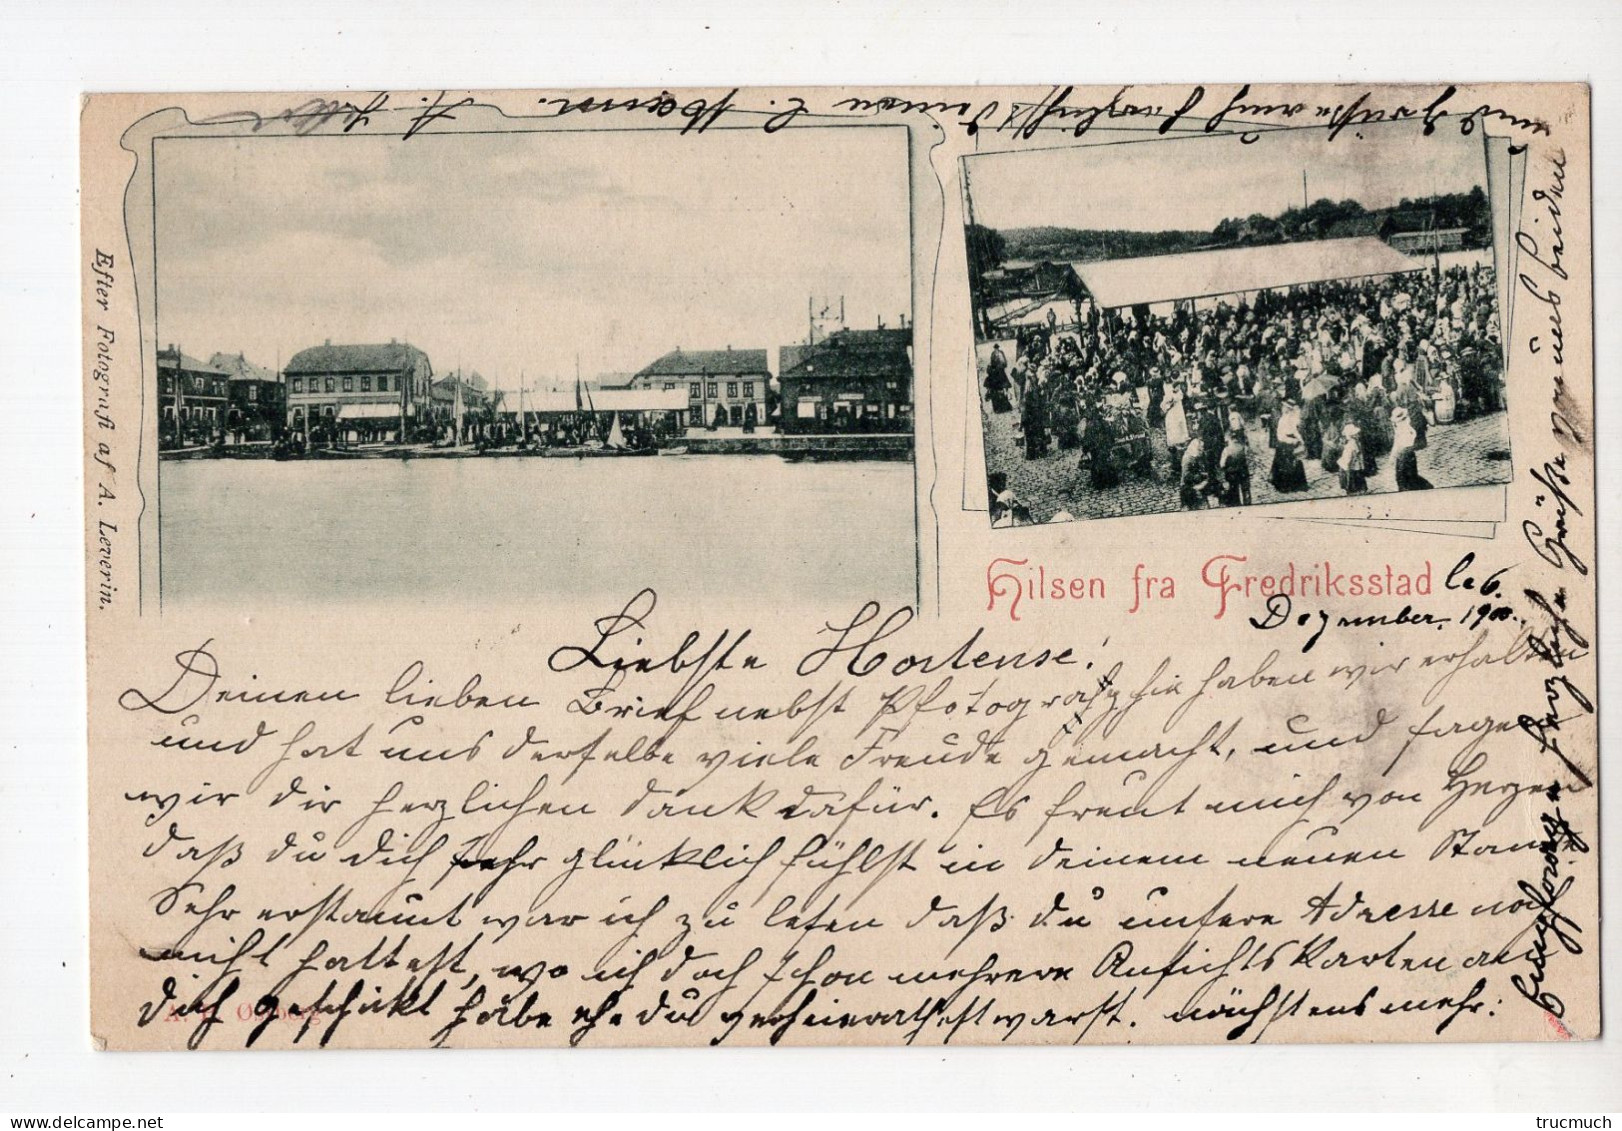 Efter Fotografi af A. Leverin.
Hilsen fra Fredriksstad
6.
Dezember. 1900.
Liebste Hortense!
Deinen lieben Brief nebst Pfotographie haben wir erhalten
und hat uns derselbe viele Freude gemacht, und sage
wir dir herzlichen dank dafür. Es freut mich von Herzen
daß du dich sehr glücklich fühlst in deinem neuen Stande
Sehr erstaunt war ich zu lesen daß du unsere Adresse noch
nicht hattest, wo ich doch schon mehrere Ansichtskarten an
dich geschickt habe ehe du verheirathest warst. nächstens mehr:
Grüße von uns beiden
und Grüße auch herzlichst deinen l. Mann. A.
trucmuch